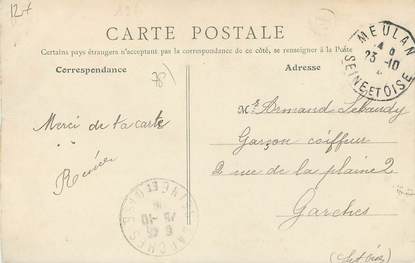 127
CARTE POSTALE
Certains pays étrangers n'acceptant pas la correspondance de ce côté, se renseigner à la Poste
Correspondance
Adresse
78)
MEULAN
23 -10
SEINE ET OISE
Mr Armand Lebaudy
Garçon coiffeur
2 rue de la plaine 2
Garches
(Set Oise)
Merci de ta carte
Renée
GARCHES
SEINE ET OISE